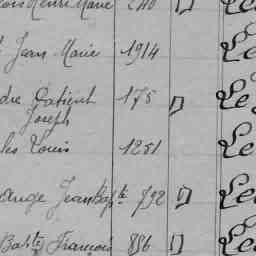 Henri Marie 240 Le
Jean Marie 1914 Le
Patient 175 Le
Joseph
Louis 1251 Le
Ange Jean Bapte 792 Le
Bapte François 886 Le